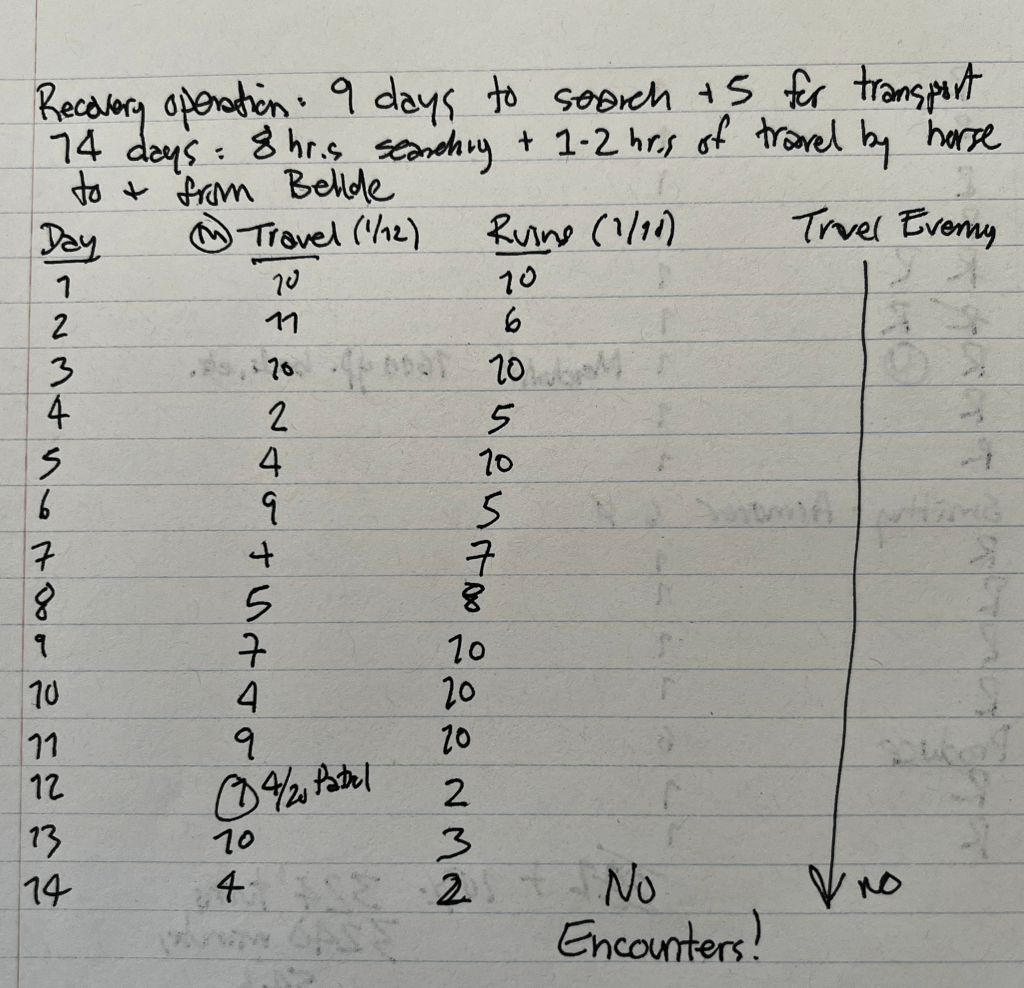 Recovery operation: 9 days to search + 5 for transport
14 days: 8 hr.s searching + 1-2 hr.s of travel by horse
to + from Bellde
Day M Travel (1/12) Ruins (1/10) Travel Evening
1 10 10
2 11 6
3 10 10
4 2 5
5 4 10
6 9 5
7 4 7
8 5 8
9 7 10
10 4 10
11 9 10
12 1 4/20 Patrol 2
13 10 3
14 4 2 No no
Encounters!